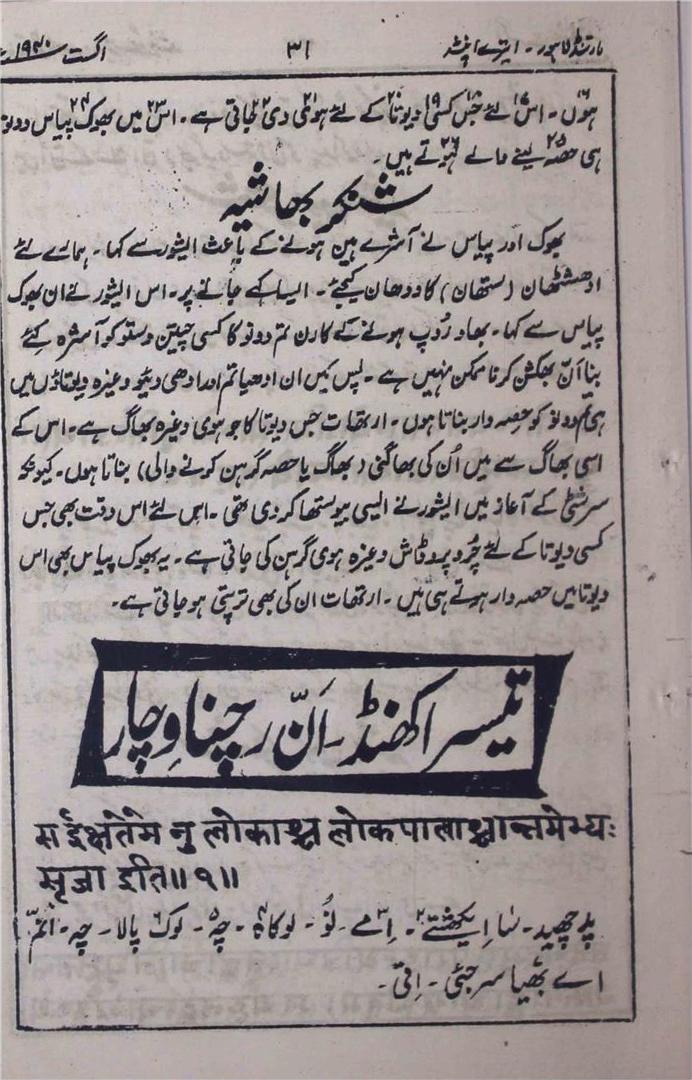 مارتنڈ لاہور - ایترے اُپنشد ۳۱ اگست ۱۹۴۰ء
ہوں۔ اس لئے جس کسی دیوتا کے لئے ہوی دی جاتی ہے۔ اس میں بھوک پیاس دونو
ہی حصہ لینے والے ہوتے ہیں۔
شنکر بھاشیہ
بھوک اور پیاس نے آشرے ہین ہونے کے باعث ایشور سے کہا۔ ہمارے لئے
ادھشٹھان (ستھان) کا ودھان کیجئے۔ ایسا کہے جانے پر۔ اس ایشور نے ان بھوک
پیاس سے کہا۔ بھاد رُوپ ہونے کے کارن تم دونو کا کسی چیتن وستو کو آشرہ کئے
بنا اَنّ بھکشن کرنا ممکن نہیں ہے۔ پس میں ان ادھیاتم اور ادھی دیئو وغیرہ دیوتاؤں میں
ہی تم دونو کو حصہ دار بناتا ہوں۔ ارتھات جس دیوتا کا جو ہوی وغیرہ بھاگ ہے۔ اس کے
اسی بھاگ سے میں اُن کی بھاگنی (بھاگ یا حصہ گرہن کرنے والی) بناتا ہوں۔ کیونکہ
سرشٹی کے آغاز میں ایشور نے ایسی بیوستھا کر دی تھی۔ اس لئے اس وقت بھی جس
کسی دیوتا کے لئے چرُو پروڈاش وغیرہ ہوی گرہن کی جاتی ہے۔ یہ بھوک پیاس بھی اس
دیوتا میں حصہ دار ہوتے ہی ہیں۔ ارتھات ان کی بھی ترپتی ہو جاتی ہے۔
تیسرا کھنڈ۔ اَنّ رچنا وِچار
स ईक्षतेमे नु लोकाश्च लोकपालाश्चान्नमेभ्यः
सृजा इति॥ १॥
پد چھید۔ سَا ایکھشتے۔ اِمے۔ نُو۔ لوکاہ۔ چہ۔ لوک پالا۔ چہ۔ انّم
اے بھیا سرجئی۔ اِتی۔